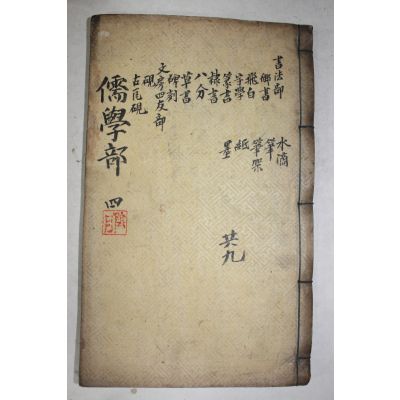 書法部
佛書
飛白
字學
篆書
隷書
八分
草書
碑刻
文房四友部
硯
古瓦硯
水滴
筆
筆架
紙
墨
共九
儒學部
四